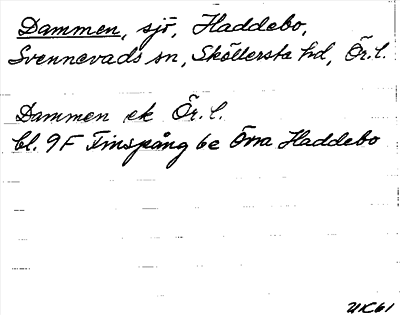 Dammen, sjö, Haddebo,
Svennevads sn, Sköllersta hd, Ör.l.
Dammen ek Ör.l.
bl. 9F Finspång 6e Övra Haddebo
UK61